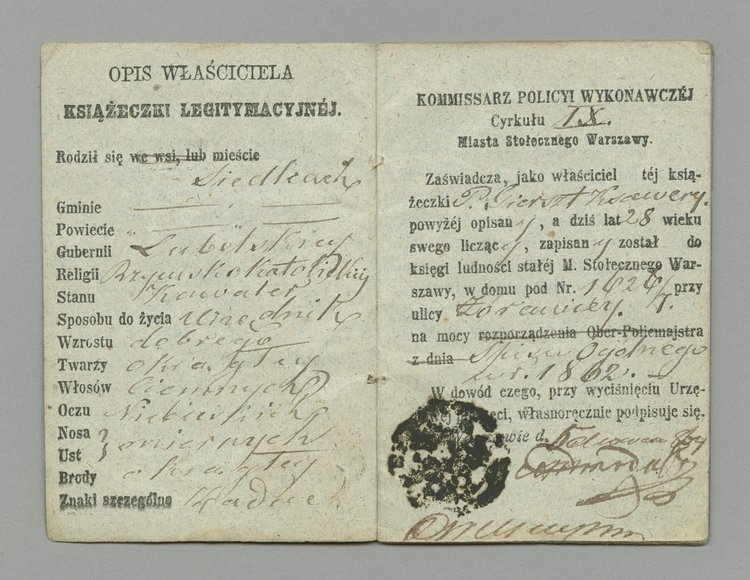 OPIS WŁAŚCICIELA
KSIĄŻECZKI LEGITYMACYJNÉJ.
Rodził się we wsi, lub mieście
Siedlcach
Gminie
Powiecie
Gubernii Lubelskiéy
Religii Rzymskokatolickiéy
Stanu Kawaler
Sposobu do życia Urzędnik
Wzrostu dobrego
Twarzy okrągłéy
Włosów Ciemnych
Oczu Niebieskich
Nosa
Ust miernych
Brody okrągłéy
Znaki szczególne Żadne
KOMMISSARZ POLICYI WYKONAWCZÉJ
Cyrkułu IX.
Miasta Stołecznego Warszawy.
Zaświadcza, jako właściciel téj ksią-
żeczki P. Ksawery.
powyżéj opisany, a dziś lat 28 wieku
swego liczący, zapisany został do
księgi ludności stałéj M. Stołecznego War-
szawy, w domu pod Nr. przy
ulicy Żórawiey.
na mocy rozporządzenia Ober-Policmajstra
z dnia Spisu Ogólnego
z r. 1862.
W dowód czego, przy wyciśnięciu Urzę-
ci, własnoręcznie podpisuje się.
wie d.